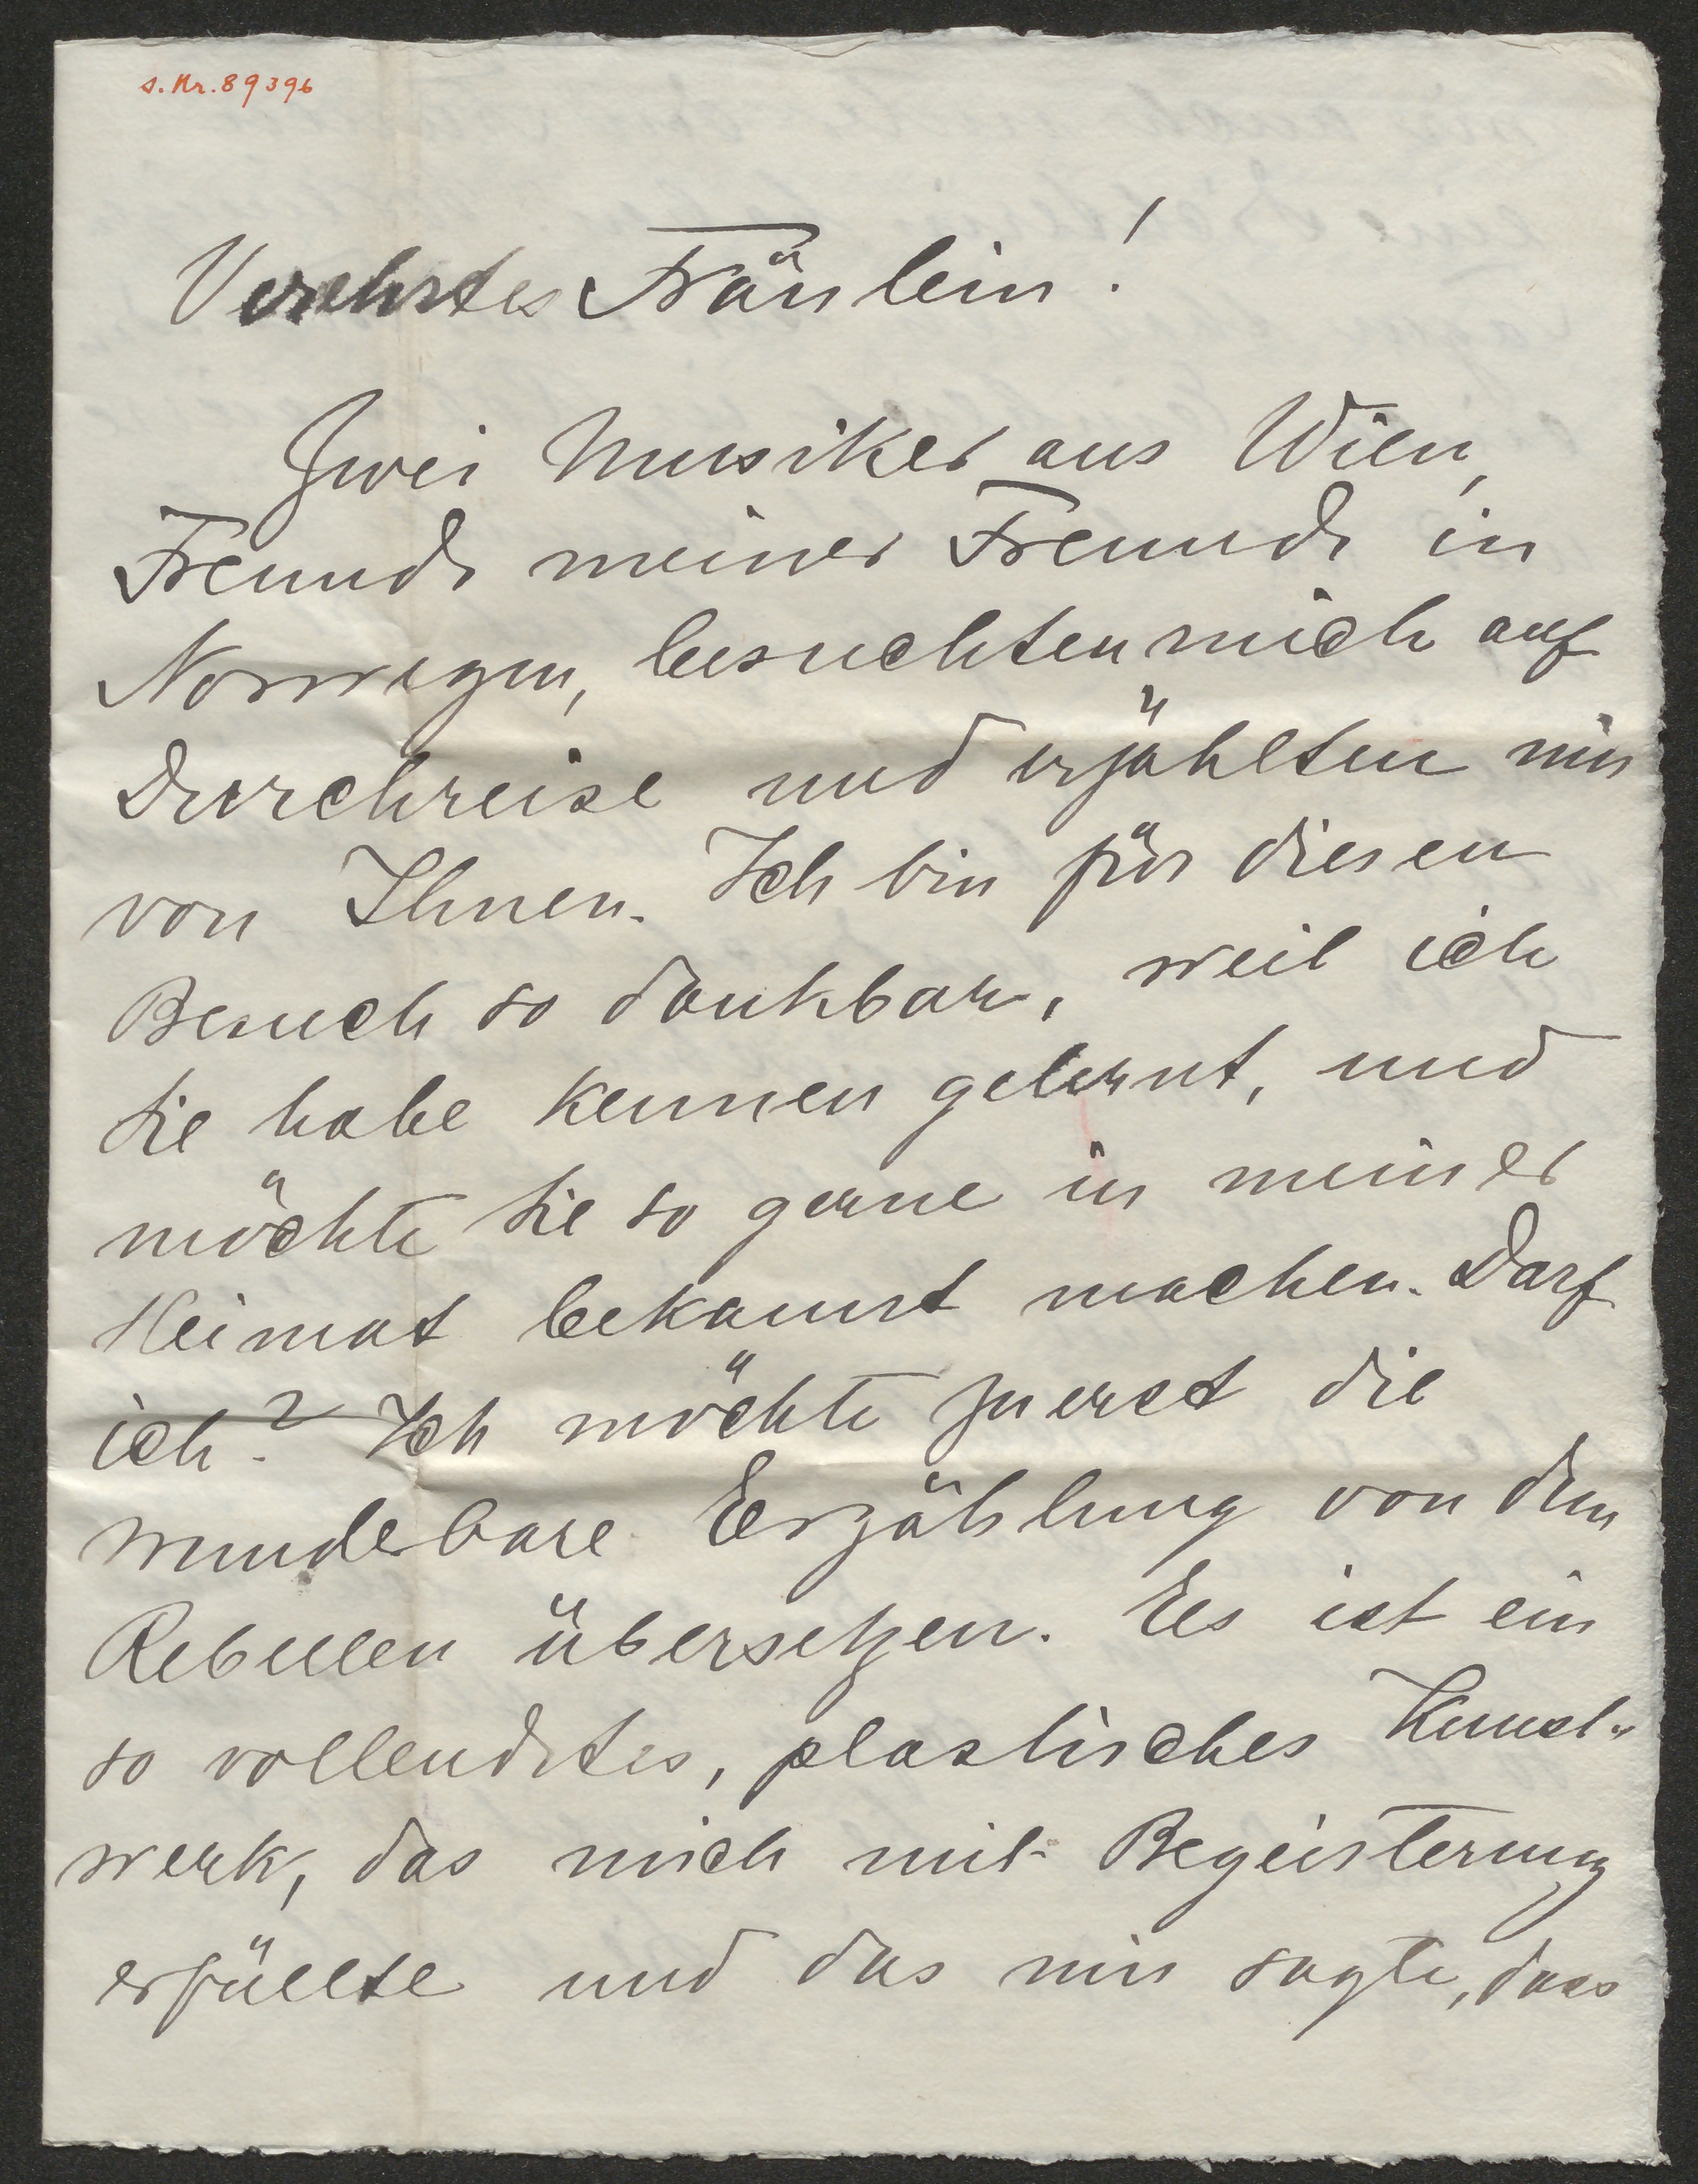 s. Nr. 89396
Verehrtes Fräulein!
Zwei Musiker aus Wien,
Freunde meiner Freunde in
Norwegen, besuchten mich auf
Durchreise und erzählten mir
von Ihnen. Ich bin für diesen
Besuch so dankbar, weil ich
Sie habe kennen gelernt, und
möchte Sie so gerne in meiner
Heimat bekannt machen. Darf
ich? Ich möchte zuerst die
wunderbare Erzählung von dem
Rebellen übersetzen. Es ist ein
so vollendetes, plastisches Kunst-
werk, das mich mit Begeisterung
erfüllte und das mir sagte, dass